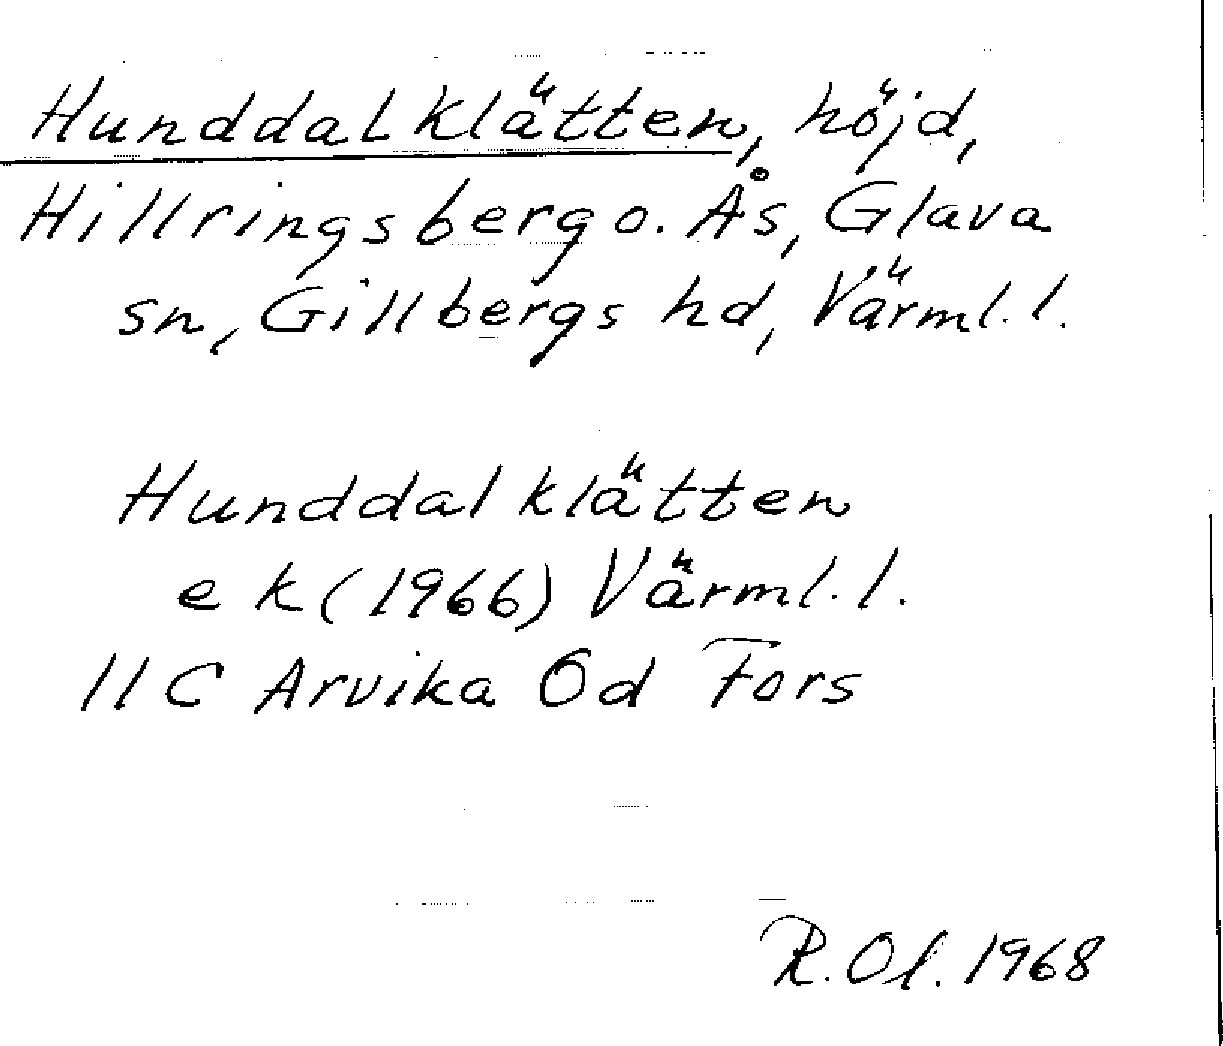 Hunddalklätten, höjd,
Hillringsberg o. Ås, Glava
sn, Gillbergs hd, Värml. l.
Hunddalklätten
ek (1966) Värml. l.
11C Arvika Öd Fors
R. Ol. 1968